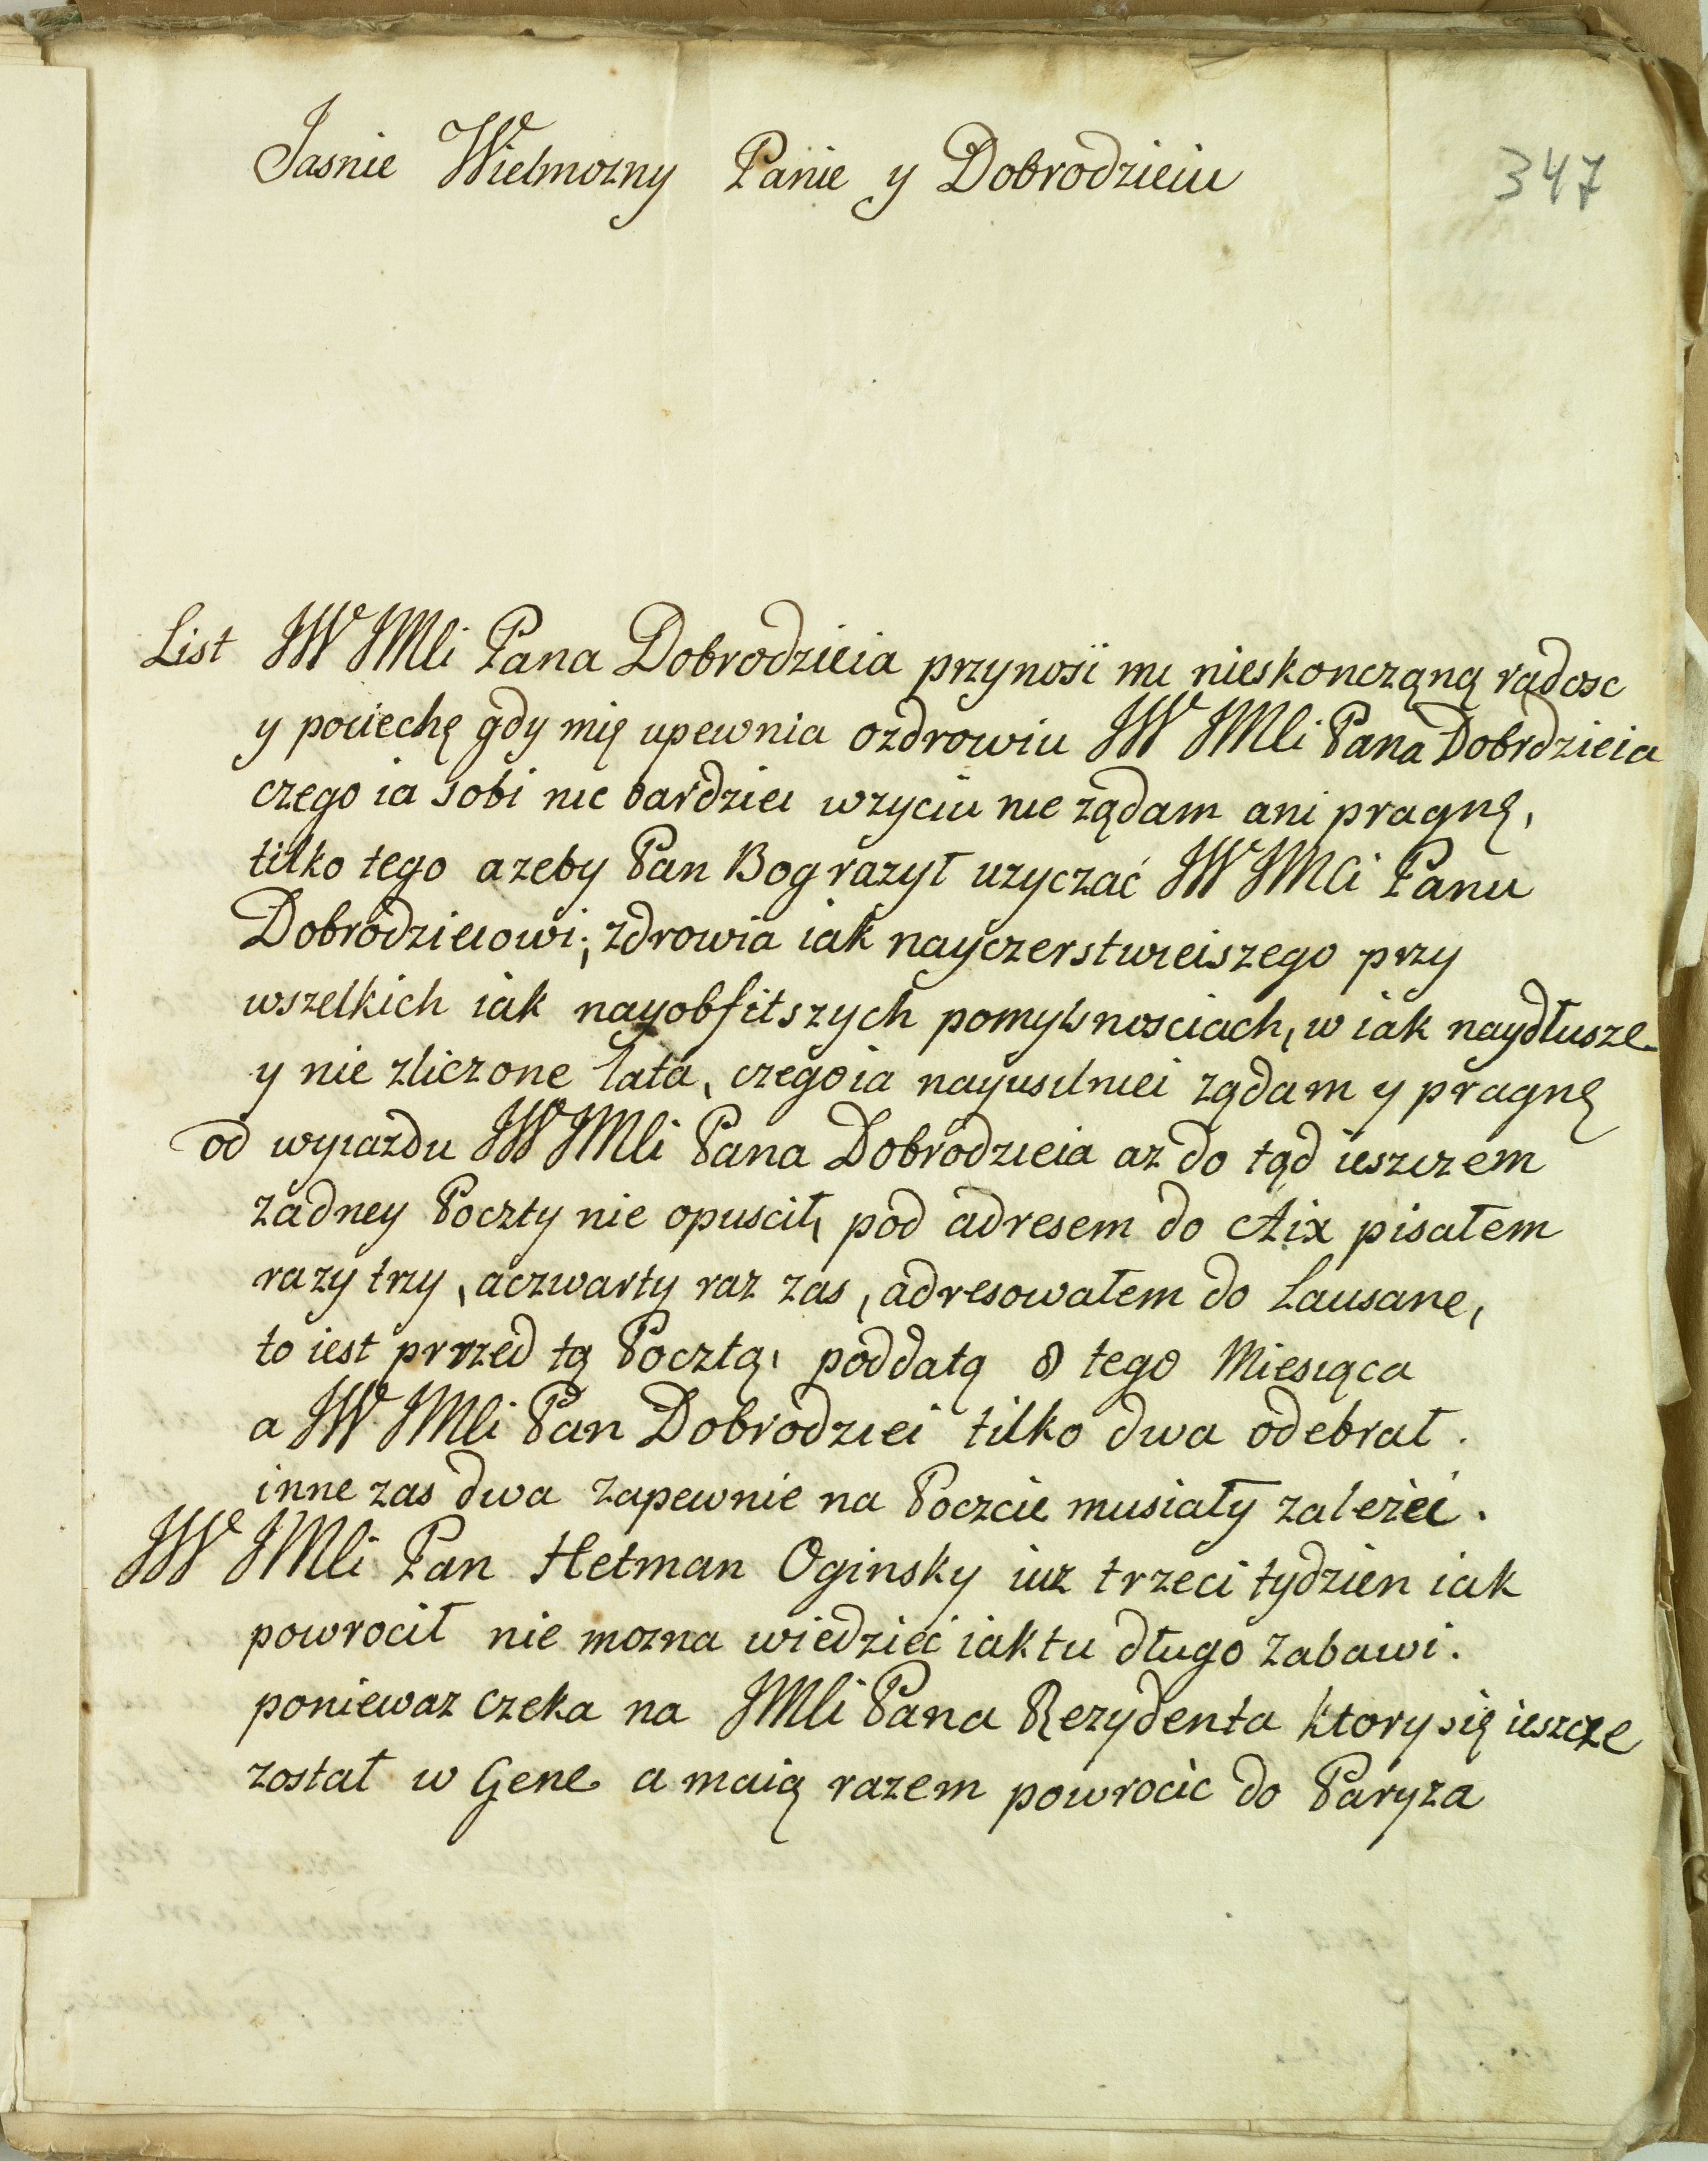 Jasnie Wielmozny Panie y Dobrodzieiu
347
List JW JMli Pana Dobrodzieia przynosi mi nieskoncząną radosc
y pociechę gdy mię upewnia ozdrowiu JW JMli Pana Dobrdzieia
czego ia sobi nic bardziei wzyciu nie ządam ani pragnę,
tilko tego azeby Pan Bog razył uzyczać JW JMli Panu
Dobrodzieiowi; zdrowia iak nayczerstwieiszego przy
wszelkich iak nayobfitszych pomyslnosciach, w iak naydłusze
y nie zliczone lata, czegoia nayusilniei ządam y pragnę
od wyiazdu JW JMli Pana Dobrodzieia az do tąd ieszczem
zadney Poczty nie opuscił, pod adresem do Aix pisałem
razy trzy, aczwarty raz zas, adresowałem do Lausane,
to iest przed tą Pocztą, poddatą 8 tego Miesiąca
a JW JMli Pan Dobrodziei tilko dwa odebrał.
inne zas dwa zapewnie na Poczcie musiały zalezeć.
JW JMli Pan Hetman Oginsky iuz trzeci tydzien iak
powrocił nie mozna wiedzieć iaktu długo zabawi.
poniewaz czeka na JMli Pana Rezydenta ktory się ieszcze
został w Gene a maią razem powrocic do Paryza